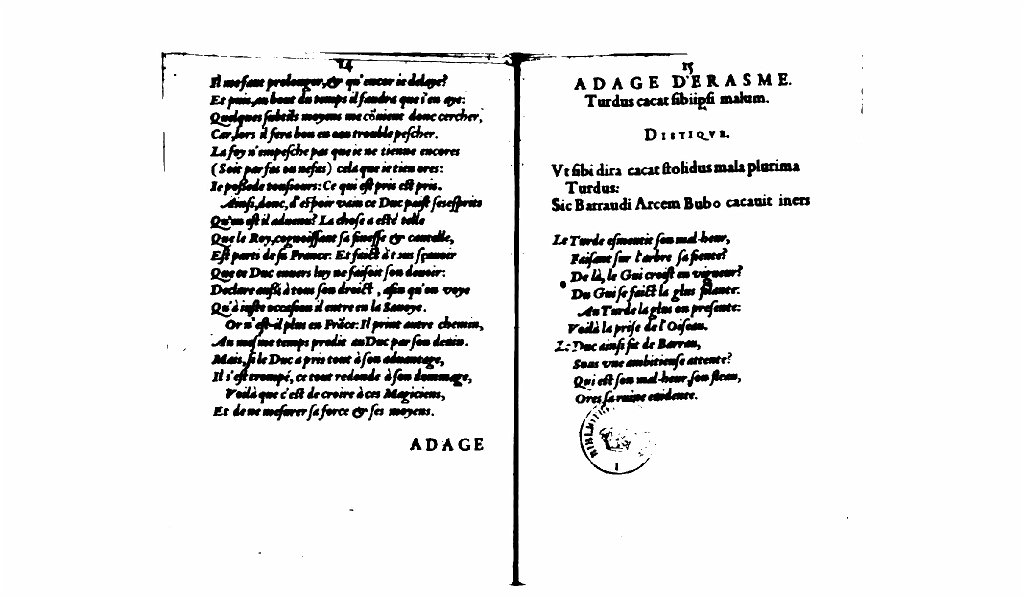 14
Il me faut prolonger, & qu'encor ie delaye?
Et puis, au bout du temps il faudra que i'en aye:
Quelques subtils moyens me cõuient donc cercher,
Car, lors il fera bon en eau trouble pescher.
La foy n'empesche pas que ie ne tienne encores
(Soit par fas ou nefas) cela que ie tien ores:
Ie possede tousiours: Ce qui est pris est pris.
Ainsi, donc, d'espoir vain ce Duc paist ses esprits
Qu'en est il aduenu? La chose a esté telle
Que le Roy, cognoissant sa finesse & cautelle,
Est parti de sa France: Et faict à tous sçauoir
Que ce Duc enuers luy ne faisoit son deuoir:
Declare aussi à tous son droict, afin qu'on voye
Qu'à iuste occasion il entre en la Sauoye.
Or n'est-il plus en Frãce: Il print autre chemin,
Au mesme temps prodit au Duc par son deuin.
Mais, si le Duc a pris tout à son aduantage,
Il s'est trompé, ce tout redonde à son dommage,
Voilà que c'est de croire à ces Magiciens,
Et de ne mesurer sa force & ses moyens.
ADAGE
15
ADAGE D'ERASME.
Turdus cacat sibiipsi malum.
DISTIQVE.
Vt sibi dira cacat stolidus mala plurima
Turdus:
Sic Barraudi Arcem Bubo cacauit iners
Le Turde esmeutit son mal-heur,
Faisant sur l'arbre sa fiente?
De là, le Gui croist en vigueur?
Du Gui se faict la glus
Au Turde la glus on presente:
Voilà la prise de l'Oiseau.
Le Duc ainsi fit de Barrau,
Sous vne ambitieuse attente?
Qui est son mal-heur son fleau,
Ores sa ruine euidente.